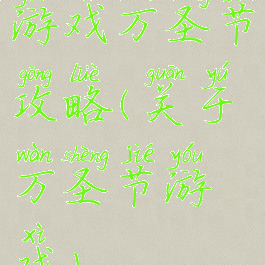 游戏万圣节
gōng lüè guān yú
攻略(关于
wàn shèng jié yóu
万圣节游
xì
戏)